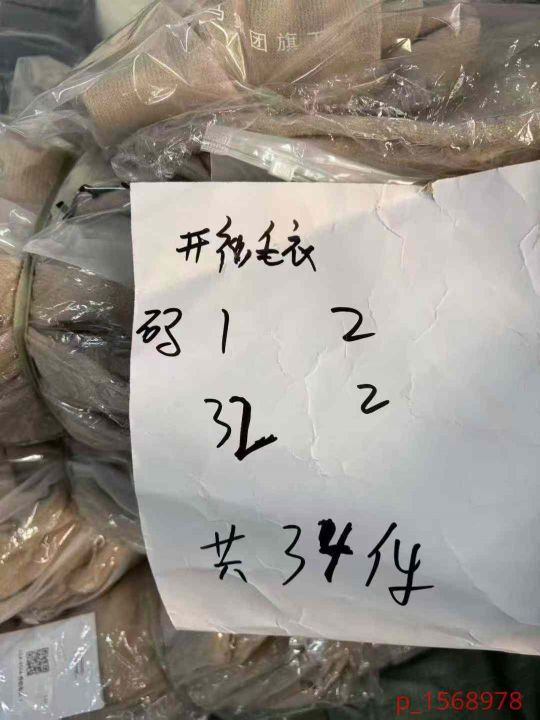 团旗下
开衫毛衣
码 1 2
32 2
共34件
p_1568978